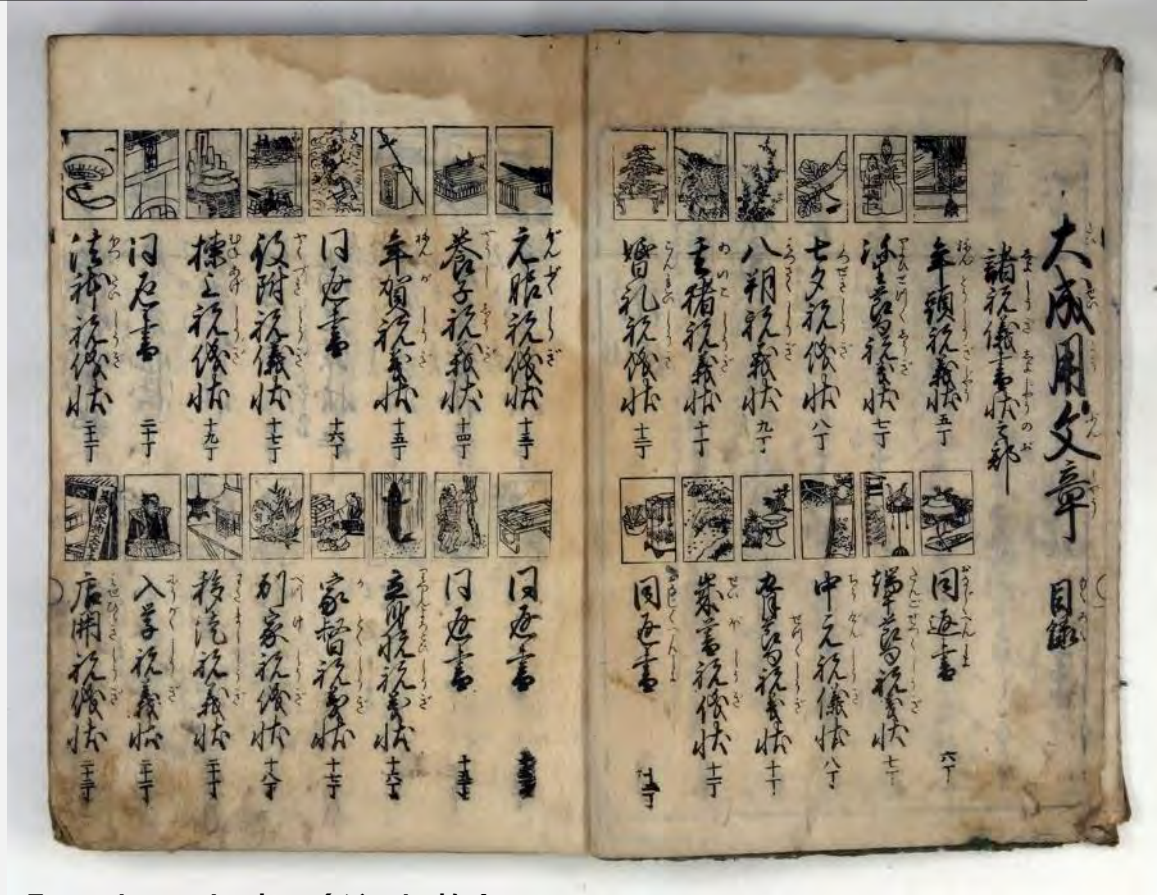 大成用文章 目録
諸祝儀書状之部
年頭祝義状 五丁
同返書 六丁
弥生節句祝義状 七丁
端午節句祝義状 七丁
七夕祝儀状 八丁
中元祝儀状 八丁
八朔祝義状 九丁
十丁
玄猪祝義状 十丁
歳暮祝儀状 十一丁
婚礼祝儀状 十二丁
同返書
元服祝儀状 十三丁
同返書
養子祝義状 十四丁
同返書 十五丁
年賀祝義状 十五丁
祝義状 十六丁
同返書 十六丁
家督祝義状 十七丁
役附祝儀状 十七丁
別家祝儀状 十八丁
棟上祝儀状 十九丁
移徙祝義状 二十丁
同返書 二十丁
入学祝義状 二十一丁
法体祝儀状 二十二丁
店開祝儀状 二十二丁